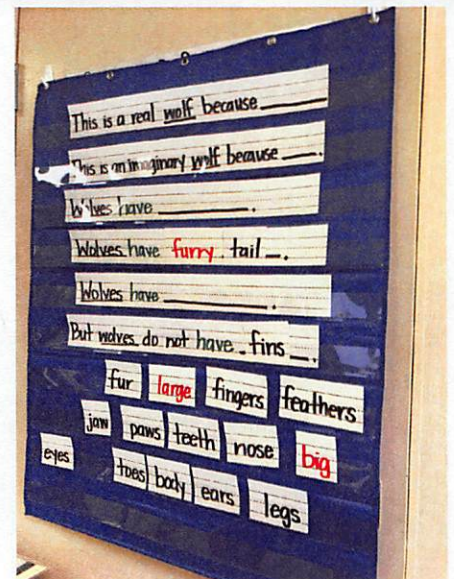 This is a real wolf because ______
This is an imaginary wolf because ___.
Wolves have ________.
Wolves have furry tail _.
Wolves have __________.
But wolves do not have fins _.
fur large fingers feathers
jaw paws teeth nose big
eyes toes body ears legs